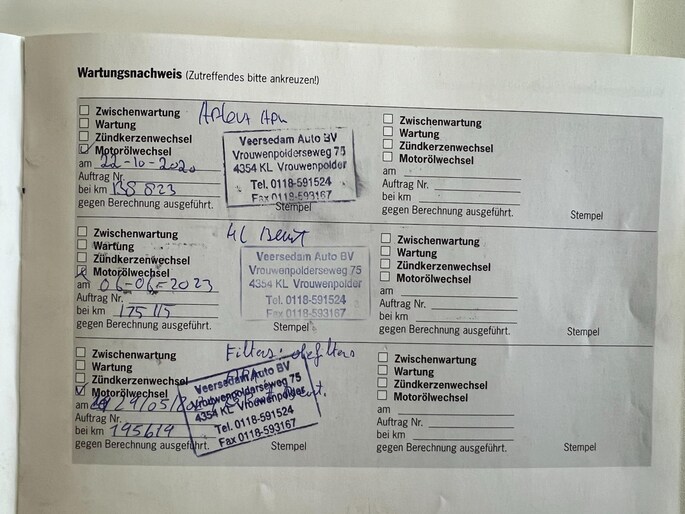 Wartungsnachweis (Zutreffendes bitte ankreuzen!)
Zwischenwartung
Wartung
Zündkerzenwechsel
Motorölwechsel
am 22-10-2020
Auftrag Nr.
bei km 138 823
gegen Berechnung ausgeführt.
Veersedam Auto BV
Vrouwenpolderseweg 75
4354 KL Vrouwenpolder
Tel. 0118-591524
Fax 0118-593167
Stempel
Zwischenwartung
Wartung
Zündkerzenwechsel
Motorölwechsel
am
Auftrag Nr.
bei km
gegen Berechnung ausgeführt.
Stempel
Zwischenwartung
Wartung
Zündkerzenwechsel
Motorölwechsel
am 06-06-2023
Auftrag Nr.
bei km 175 115
gegen Berechnung ausgeführt.
Veersedam Auto BV
Vrouwenpolderseweg 75
4354 KL Vrouwenpolder
Tel. 0118-591524
Fax 0118-593167
Stempel
Zwischenwartung
Wartung
Zündkerzenwechsel
Motorölwechsel
am
Auftrag Nr.
bei km
gegen Berechnung ausgeführt.
Stempel
Zwischenwartung
Wartung
Zündkerzenwechsel
Motorölwechsel
am 29/05/
Auftrag Nr.
bei km 195619
gegen Berechnung ausgeführt.
Filters: oliefilters
Veersedam Auto BV
Vrouwenpolderseweg 75
4354 KL Vrouwenpolder
Tel. 0118-591524
Fax 0118-593167
Stempel
Zwischenwartung
Wartung
Zündkerzenwechsel
Motorölwechsel
am
Auftrag Nr.
bei km
gegen Berechnung ausgeführt.
Stempel